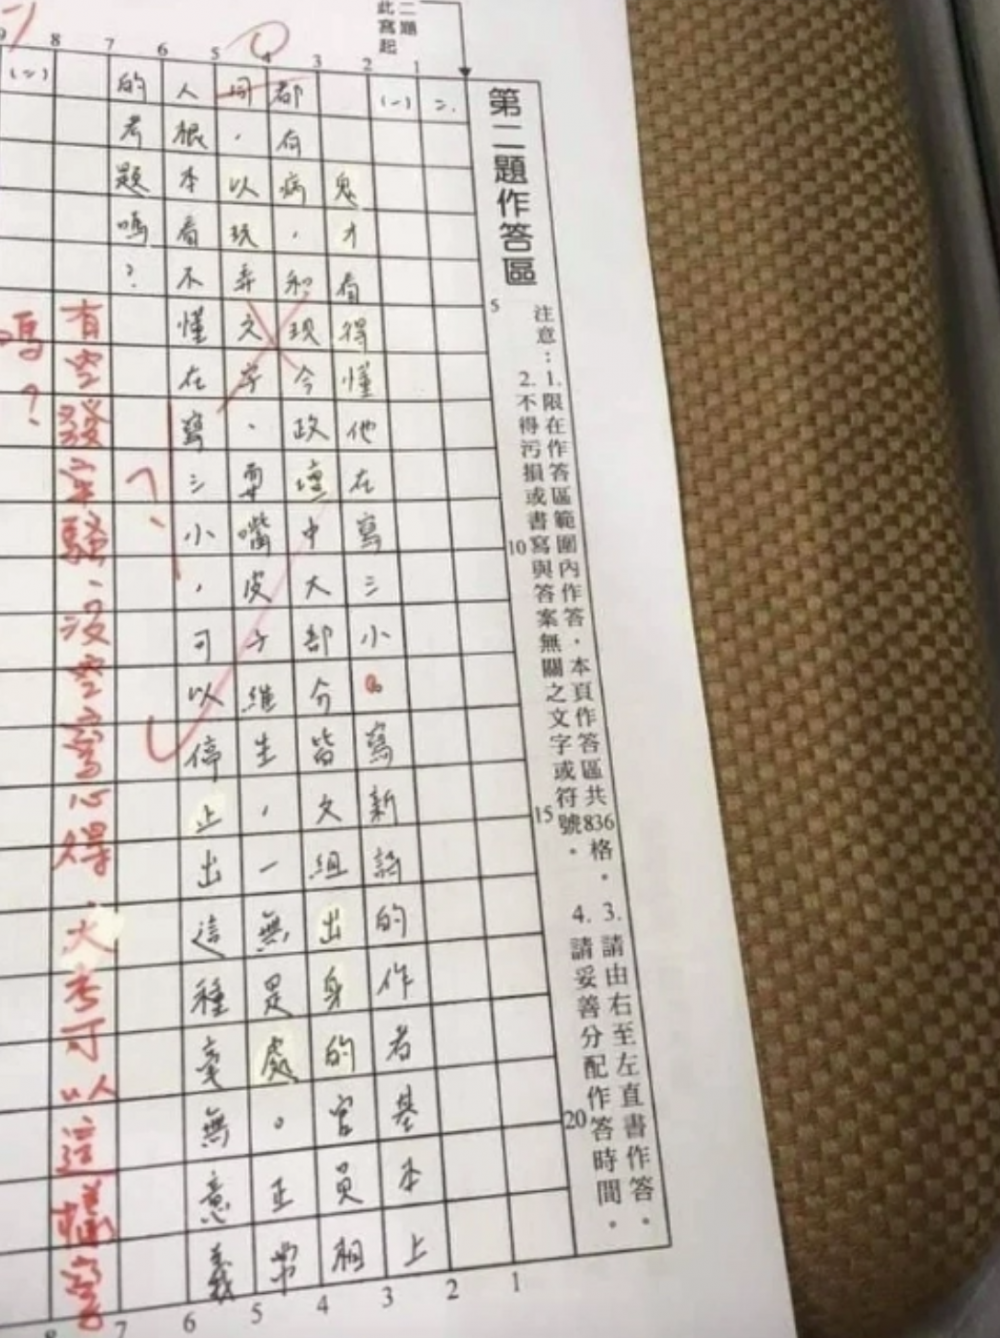 二題
此寫起
第二題作答區
注意：1.限在作答區範圍內作答，本頁作答區共836格。
2.不得污損或書寫與答案無關之文字或符號。
3.請由右至左直書作答。
4.請妥善分配作答時間。
5
10
15
20
1 2 3 4 5 6 7 8
二、
(一)
鬼才看得懂他在寫三小。寫新詩的作者基本上
都有病，和現今政壇中大部分皆文組出身的官員相
同，以玩弄文字、耍嘴皮子維生，一無是處。正常
人根本看不懂在寫三小，可以停止出這種毫無意義
的考題嗎？
有空發牢騷，沒空寫心得，大考可以這樣寫
嗎？
(二)
1 2 3 4 5 6 7 8